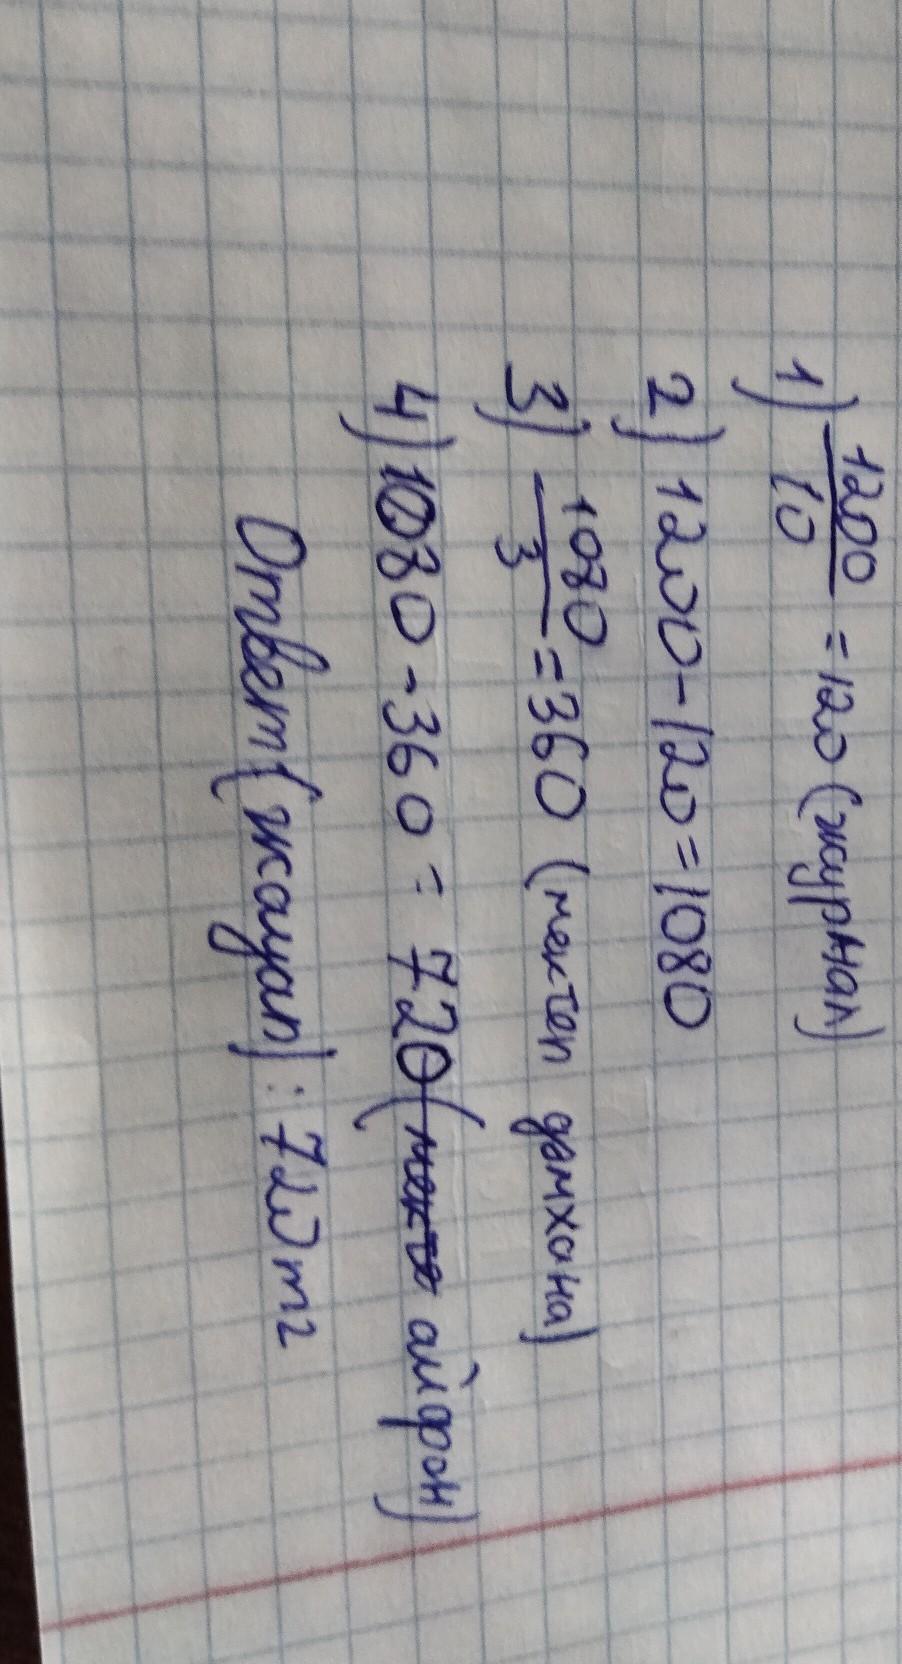 1) 1200/10 = 120 (журнал)
2) 1200 - 120 = 1080
3) 1080/3 = 360 (мектеп дәмхана)
4) 1080 - 360 = 720 (айран)
Ответ (жауап): 720 тг